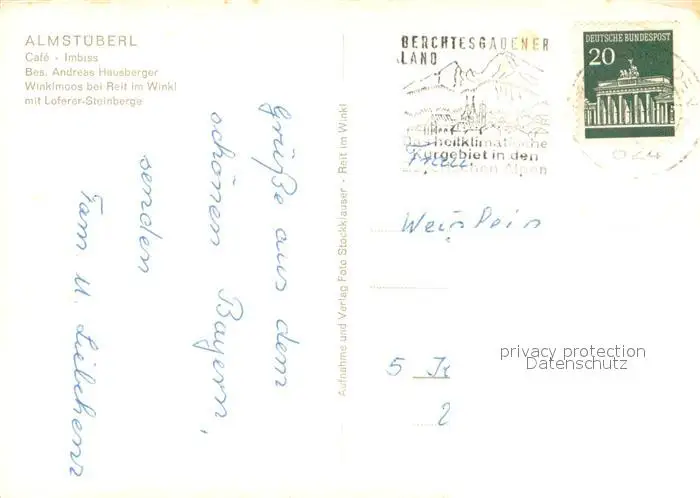 ALMSTÜBERL
Café - Imbiss
Bes. Andreas Hausberger
Winklmoos bei Reit im Winkl
mit Loferer-Steinberge
Grüße aus dem
schönen Bayern,
senden
Fam. U. Liebchenz
Aufnahme und Verlag Foto Stockklauser - Reit im Winkl
BERCHTESGADENER
LAND
Das heilklimatische
Kurgebiet in den
Bayerischen Alpen
DEUTSCHE BUNDESPOST
20
Weinlein
5
2
privacy protection
Datenschutz